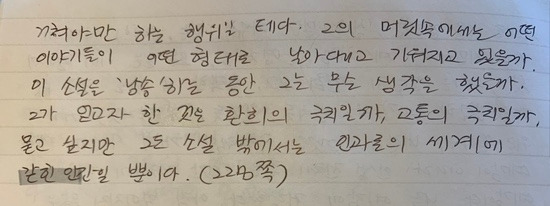 거쳐야만 하는 행위일 테다. 그의 머릿속에서는 어떤
이야기들이 어떤 형태로 날아다니고 기워지고 있을까.
이 소설은 '낭송'하는 동안 그는 무슨 생각을 했을까.
그가 얻고자 한 것은 환희의 극치일까, 고통의 극치일까,
묻고 싶지만 그도 소설 밖에서는 인과율의 세계에
갇힌 인간일 뿐이다. (쪽)